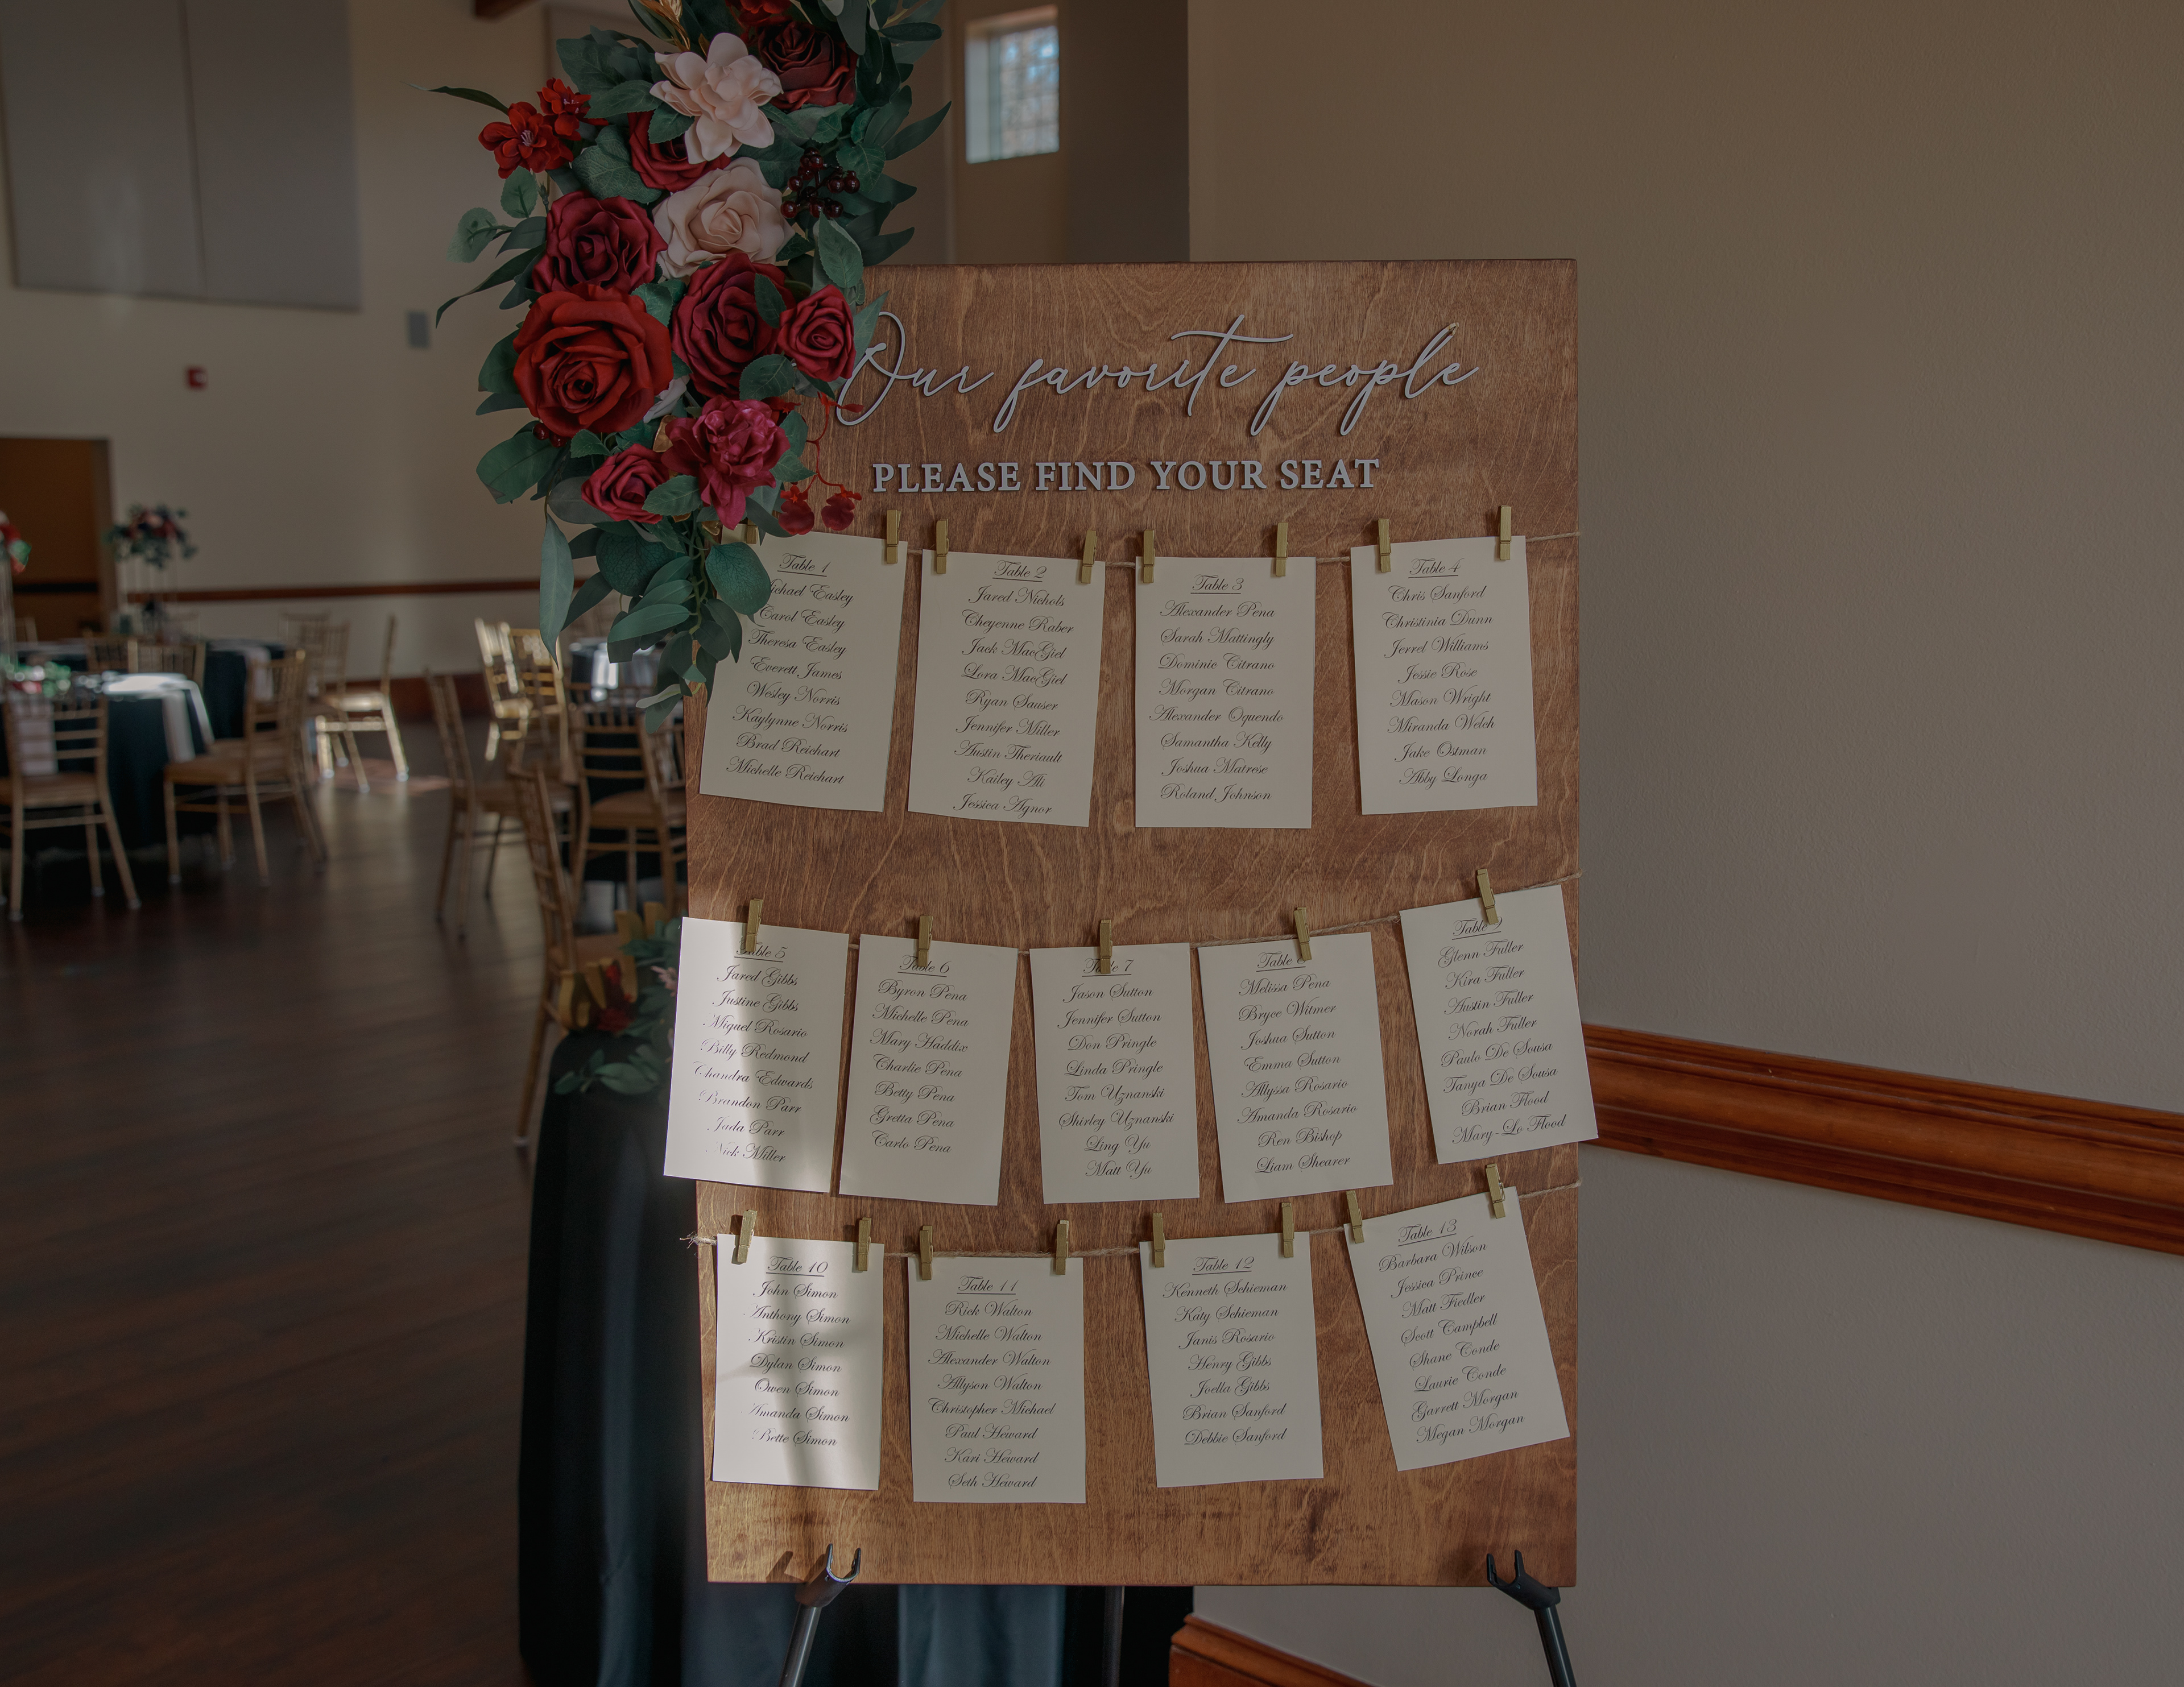 Our favorite people
PLEASE FIND YOUR SEAT
Table 1
Michael Easley
Carol Easley
Theresa Easley
Everett James
Wesley Norris
Kaylynne Norris
Brad Reichart
Michelle Reichart
Table 2
Jared Nichols
Cheyenne Raber
Jack MacGiel
Lora MacGiel
Ryan Sauser
Jennifer Miller
Austin Theriault
Kailey Ali
Jessica Agnor
Table 3
Alexander Pena
Sarah Mattingly
Dominic Citrano
Morgan Citrano
Alexander Oquendo
Samantha Kelly
Joshua Matrese
Roland Johnson
Table 4
Chris Sanford
Christinia Dunn
Jerrel Williams
Jessie Rose
Mason Wright
Miranda Welch
Jake Ostman
Abby Longa
Table 5
Jared Gibbs
Justine Gibbs
Miguel Rosario
Billy Redmond
Chandra Edwards
Brandon Parr
Jada Parr
Nick Miller
Table 6
Byron Pena
Michelle Pena
Mary Haddix
Charlie Pena
Betty Pena
Gretta Pena
Carlo Pena
Table 7
Jason Sutton
Jennifer Sutton
Don Pringle
Linda Pringle
Tom Uznanski
Shirley Uznanski
Ling Yu
Matt Yu
Table 8
Melissa Pena
Bryce Witmer
Joshua Sutton
Emma Sutton
Allyssa Rosario
Amanda Rosario
Ren Bishop
Liam Shearer
Table 9
Glenn Fuller
Kira Fuller
Austin Fuller
Norah Fuller
Paulo De Sousa
Tanya De Sousa
Brian Flood
Mary-Lo Flood
Table 10
John Simon
Anthony Simon
Kristin Simon
Dylan Simon
Owen Simon
Amanda Simon
Bette Simon
Table 11
Rick Walton
Michelle Walton
Alexander Walton
Allyson Walton
Christopher Michael
Paul Heward
Kari Heward
Seth Heward
Table 12
Kenneth Schieman
Katy Schieman
Janis Rosario
Henry Gibbs
Joella Gibbs
Brian Sanford
Debbie Sanford
Table 13
Barbara Wilson
Jessica Prince
Matt Fiedler
Scott Campbell
Shane Conde
Laurie Conde
Garrett Morgan
Megan Morgan